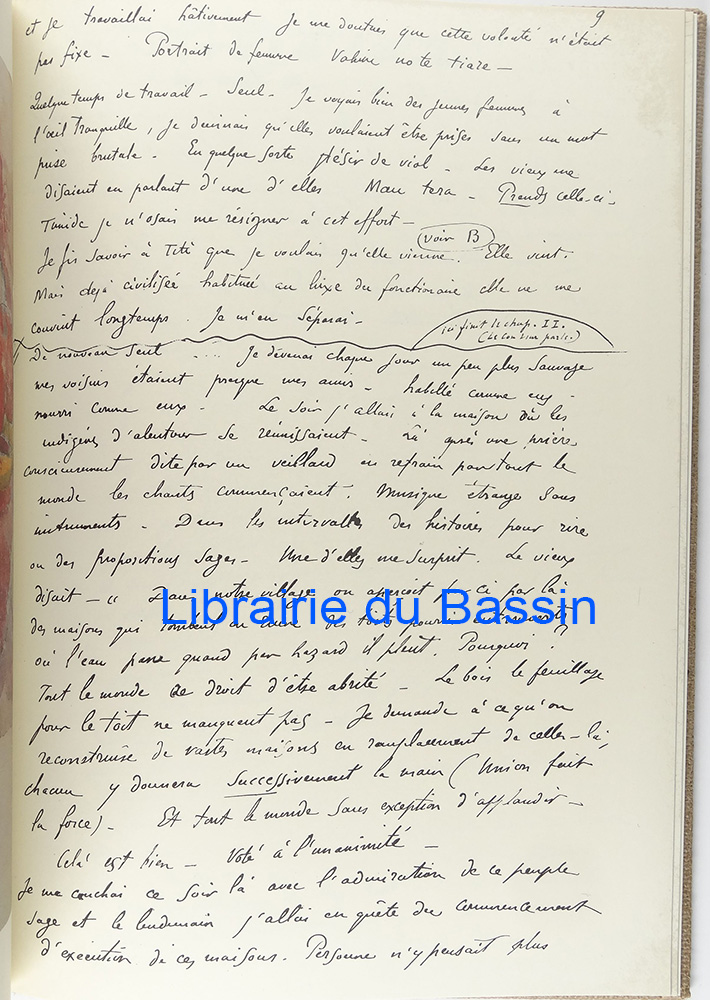 9
et je travaillai hâtivement Je me doutais que cette volonté n'était
pas fixe — Portrait de femme Vahine no te tiare —
Quelque temps de travail — Seul — Je voyais bien des jeunes femmes à
l'œil tranquille, je devinais qu'elles voulaient être prises sans un mot
prise brutale. En quelque sorte désir de viol — Les vieux me
disaient en parlant d'une d'elles Mau tera — Prends celle-ci —
Timide je n'osais me résigner à cet effort —
voir B
Je fis savoir à Titi que je voulais qu'elle vienne. Elle vint.
Mais déjà civilisée habituée au luxe du fonctionnaire elle ne me
convint longtemps. Je m'en séparai —
ici finit le chap. II.
De nouveau seul .... Je devenai chaque jour un peu plus sauvage
mes voisins étaient presque mes amis — habillé comme eux —
nourri comme eux — Le soir j'allais à la maison où les
indigènes d'alentour se réunissaient — Là après une prière
consciencieusement dite par un veillard en refrain par tout le
monde les chants commençaient. Musique étrange sans
instruments — Dans les intervalles des histoires pour rire
ou des propositions sages — Une d'elles me surprit. Le vieux
disait — " Dans notre village on aperçoit par ci par là
Librairie du Bassin
des maisons qui tombent en
où l'eau passe quand par hazard il pleut. Pourquoi ?
Tout le monde a le droit d'être abrité — Le bois le feuillage
pour le toit ne manquent pas — Je demande à ce qu'on
reconstruise de vastes maisons en remplacement de celles-là,
chacun y donnera successivement la main (Union fait
la force) — Et tout le monde sans exception d'applaudir —
Celà est bien — Voté à l'unanimité —
Je me couchai ce soir là avec l'admiration de ce peuple
sage et le lendemain j'allai en quête du commencement
d'exécution de ces maisons. Personne n'y pensait plus